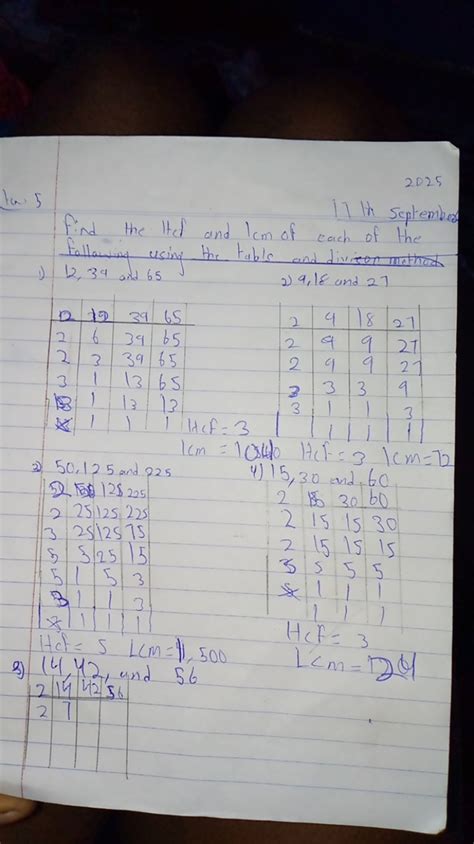 2025
17th September
Find the Hcf and lcm of each of the
following using the table and division method
1) 12, 39 and 65
2 12 39 65
2 6 39 65
2 3 39 65
3 1 13 65
1 13 13
1 1 1
Hcf = 3
lcm =
2) 9, 18 and 27
2 9 18 27
2 9 9 27
2 9 9 27
3 3 3 9
3 1 1 3
1 1 1
Hcf = 3 lcm = 72
50, 125 and 225
125 225
2 25 125 225
3 25 125 75
5 5 25 15
5 1 5 3
3 1 1 3
1 1 1
Hcf = 5 Lcm = 11,500
4) 15, 30 and 60
2 30 60
2 15 15 30
2 15 15 15
5 5 5
1 1 1
1 1 1
Hcf = 3
Lcm =
14, 42, and 56
2 14 42 56
2 7